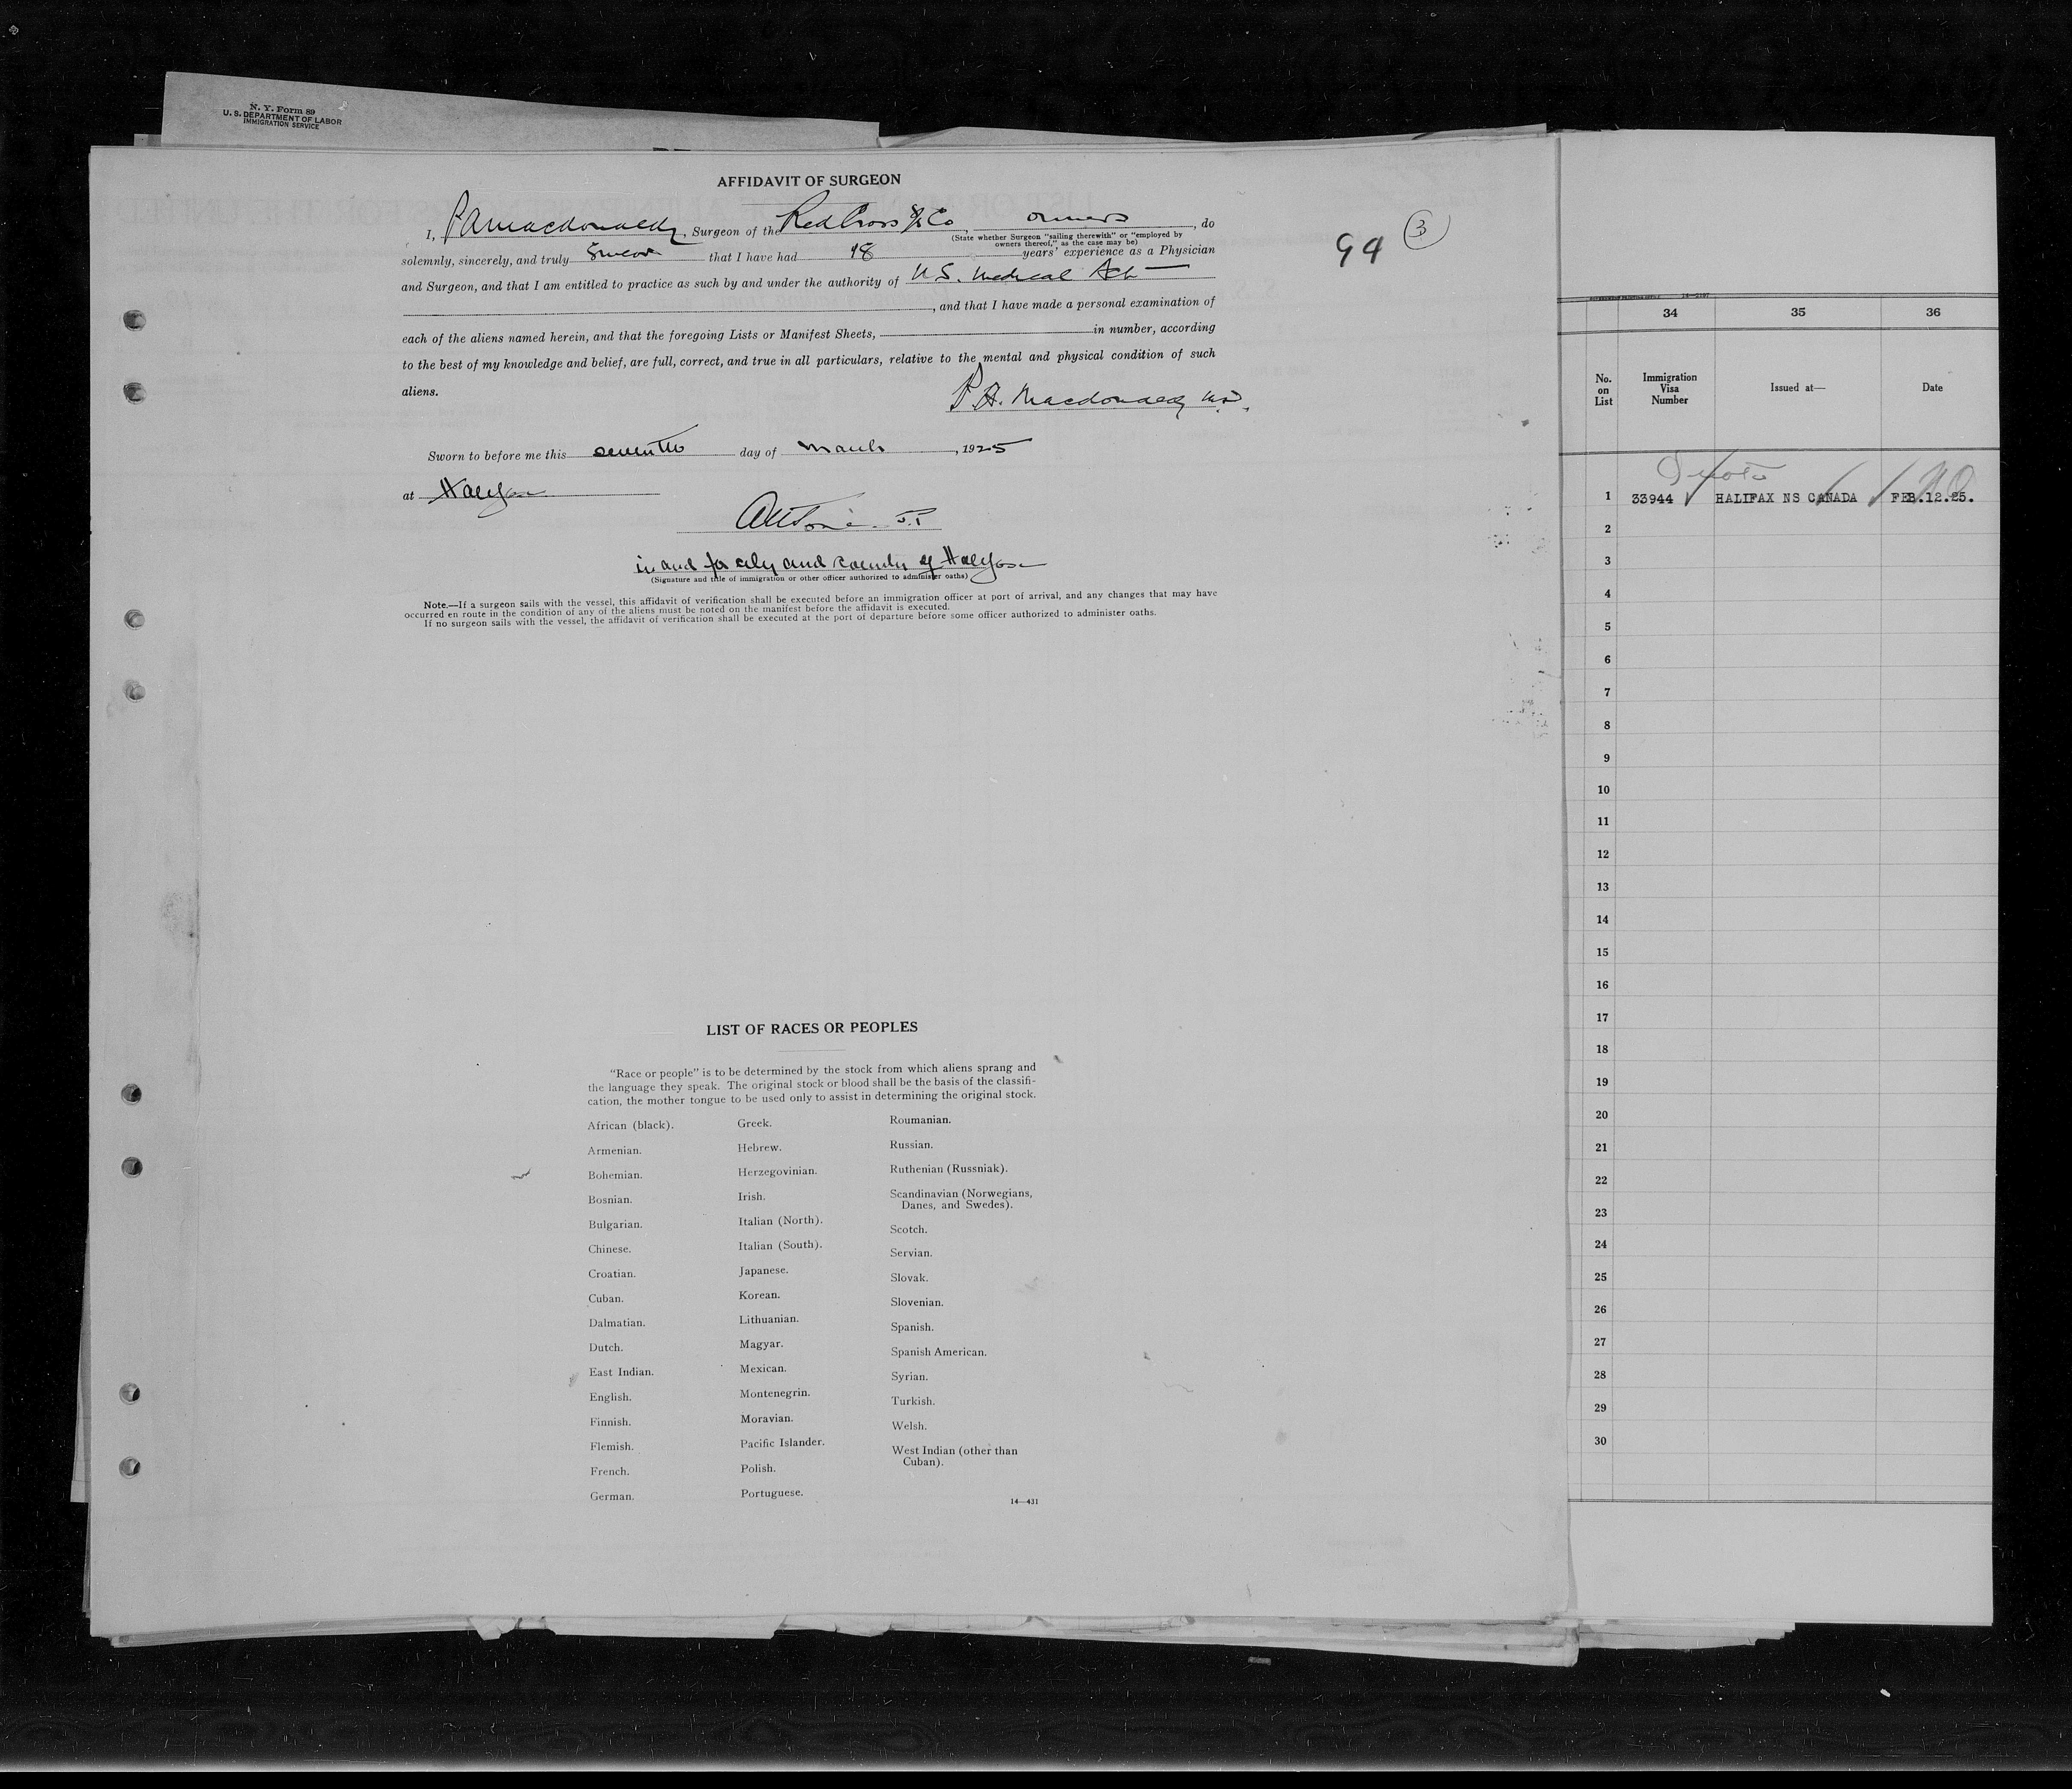 N. Y. Form 89
U. S. DEPARTMENT OF LABOR
IMMIGRATION SERVICE
AFFIDAVIT OF SURGEON
I, P A Macdonald, Surgeon of the Red Cross S/S Co, owners, do
(State whether Surgeon "sailing therewith" or "employed by
owners thereof," as the case may be)
solemnly, sincerely, and truly swear that I have had 18 years' experience as a Physician
and Surgeon, and that I am entitled to practice as such by and under the authority of N.S. Medical Act
, and that I have made a personal examination of
each of the aliens named herein, and that the foregoing Lists or Manifest Sheets, in number, according
to the best of my knowledge and belief, are full, correct, and true in all particulars, relative to the mental and physical condition of such
aliens.
P. A. Macdonald MD.
Sworn to before me this seventh day of March, 1925
at Halifax
J.P
in and for city and county of Halifax
(Signature and title of immigration or other officer authorized to administer oaths)
Note.—If a surgeon sails with the vessel, this affidavit of verification shall be executed before an immigration officer at port of arrival, and any changes that may have
occurred en route in the condition of any of the aliens must be noted on the manifest before the affidavit is executed.
If no surgeon sails with the vessel, the affidavit of verification shall be executed at the port of departure before some officer authorized to administer oaths.
94 3
LIST OF RACES OR PEOPLES
"Race or people" is to be determined by the stock from which aliens sprang and
the language they speak. The original stock or blood shall be the basis of the classifi-
cation, the mother tongue to be used only to assist in determining the original stock.
African (black).
Armenian.
Bohemian.
Bosnian.
Bulgarian.
Chinese.
Croatian.
Cuban.
Dalmatian.
Dutch.
East Indian.
English.
Finnish.
Flemish.
French.
German.
Greek.
Hebrew.
Herzegovinian.
Irish.
Italian (North).
Italian (South).
Japanese.
Korean.
Lithuanian.
Magyar.
Mexican.
Montenegrin.
Moravian.
Pacific Islander.
Polish.
Portuguese.
Roumanian.
Russian.
Ruthenian (Russniak).
Scandinavian (Norwegians,
Danes, and Swedes).
Scotch.
Servian.
Slovak.
Slovenian.
Spanish.
Spanish American.
Syrian.
Turkish.
Welsh.
West Indian (other than
Cuban).
14—431
34 35 36
No.
on
List
Immigration
Visa
Number
Issued at—
Date
1 33944 HALIFAX NS CANADA FEB.12.25.
2
3
4
5
6
7
8
9
10
11
12
13
14
15
16
17
18
19
20
21
22
23
24
25
26
27
28
29
30